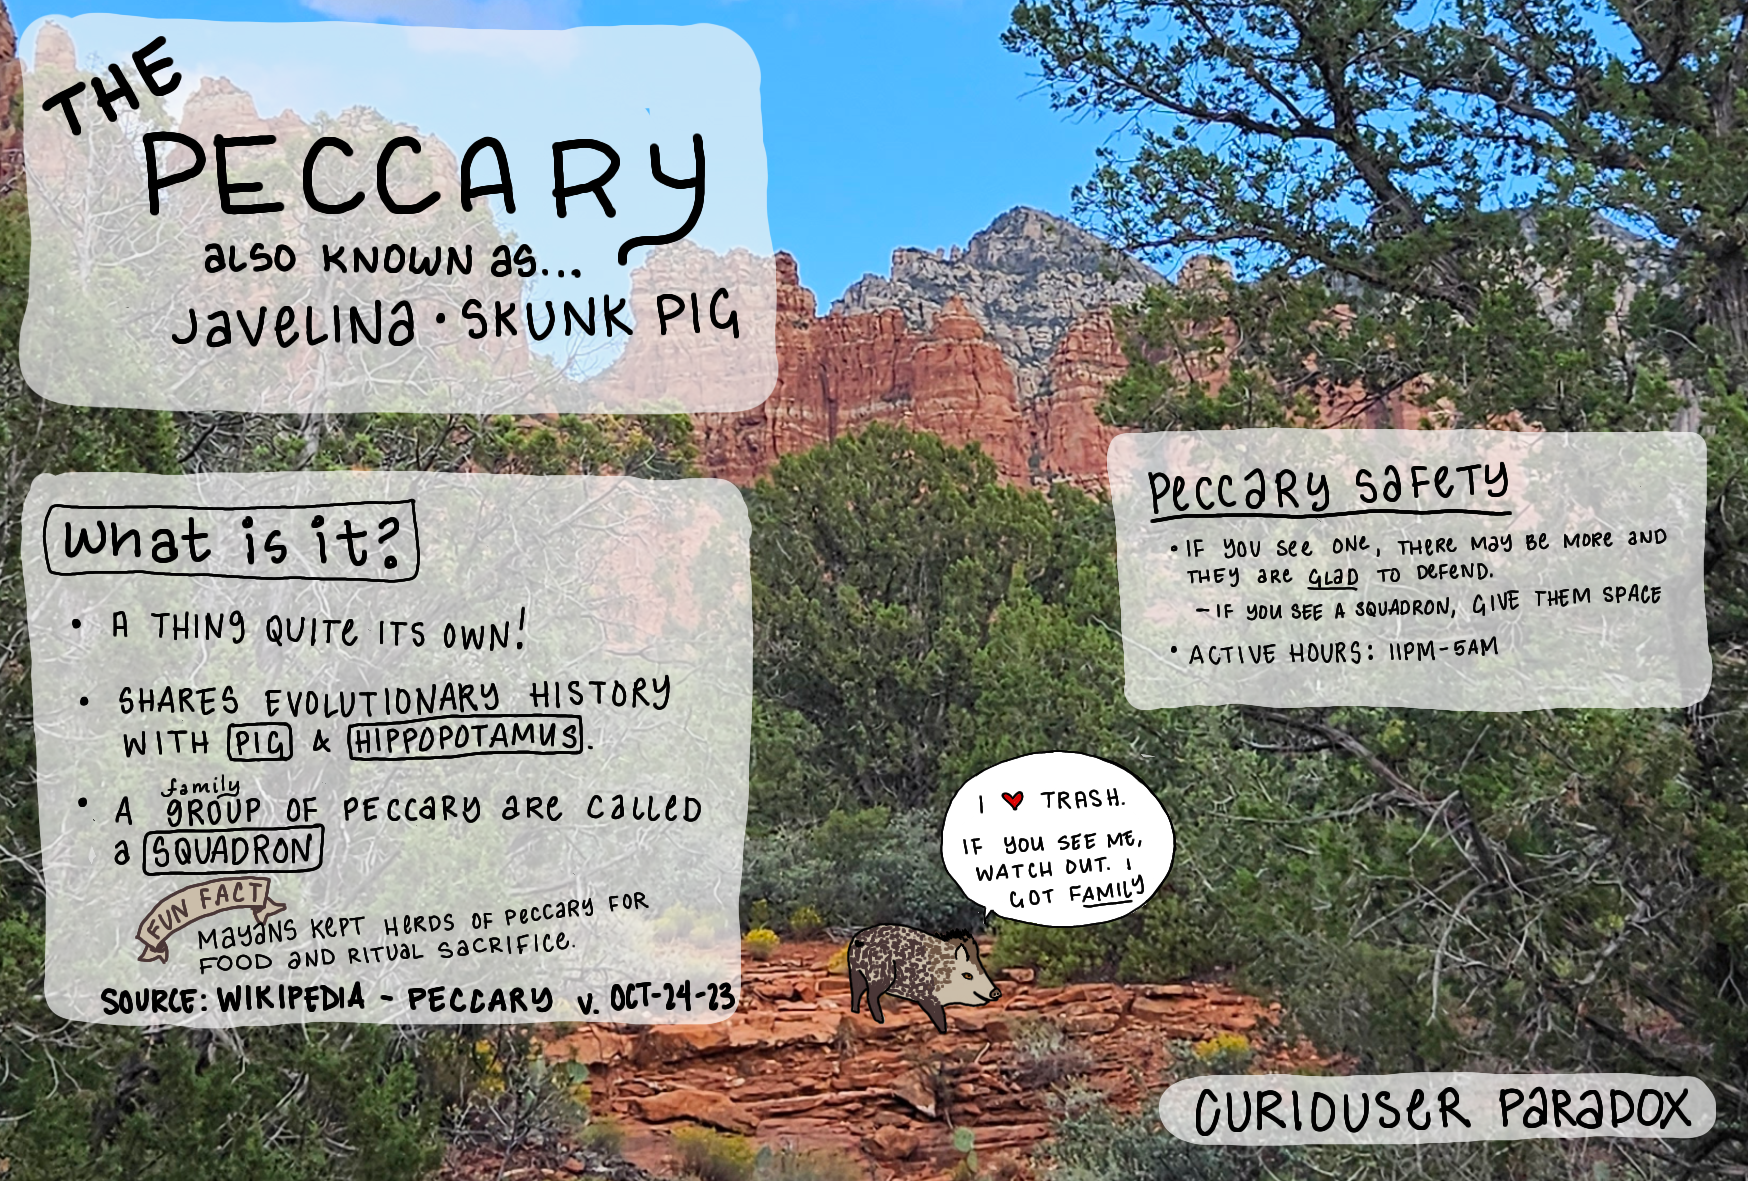 THE
PECCARY
aLSO KNOWN as...
JaVeLINa • SKUNK PIG
What is it?
• A THING QUITe ITS OWN!
• SHARES EVOLUTIONARY HISTORY
WITH PIG & HIPPOPOTAMUS.
family
• A GROUP OF PECCARY aRe CaLLeD
a SQUADRON
FUN FACT
MayaNS KePT HeRDS OF PeCCaRY FOR
FOOD aND RITUaL SaCRIFICe.
SOURCE: WIKIPEDIA - PECCARY V. OCT-24-23
PeCCaRy SaFeTY
• IF YOU See ONe, THERE May BE MORe aND
THEY aRe GLaD TO DeFeND.
- IF YOU SEE A SQUADRON, GIVE THEM SPACE
• ACTIVE HOURS: 11PM-5AM
I ♥ TRASH.
IF YOU SEE ME,
WATCH OUT. I
GOT FAMILY
CURIOUSeR PaRaDOX